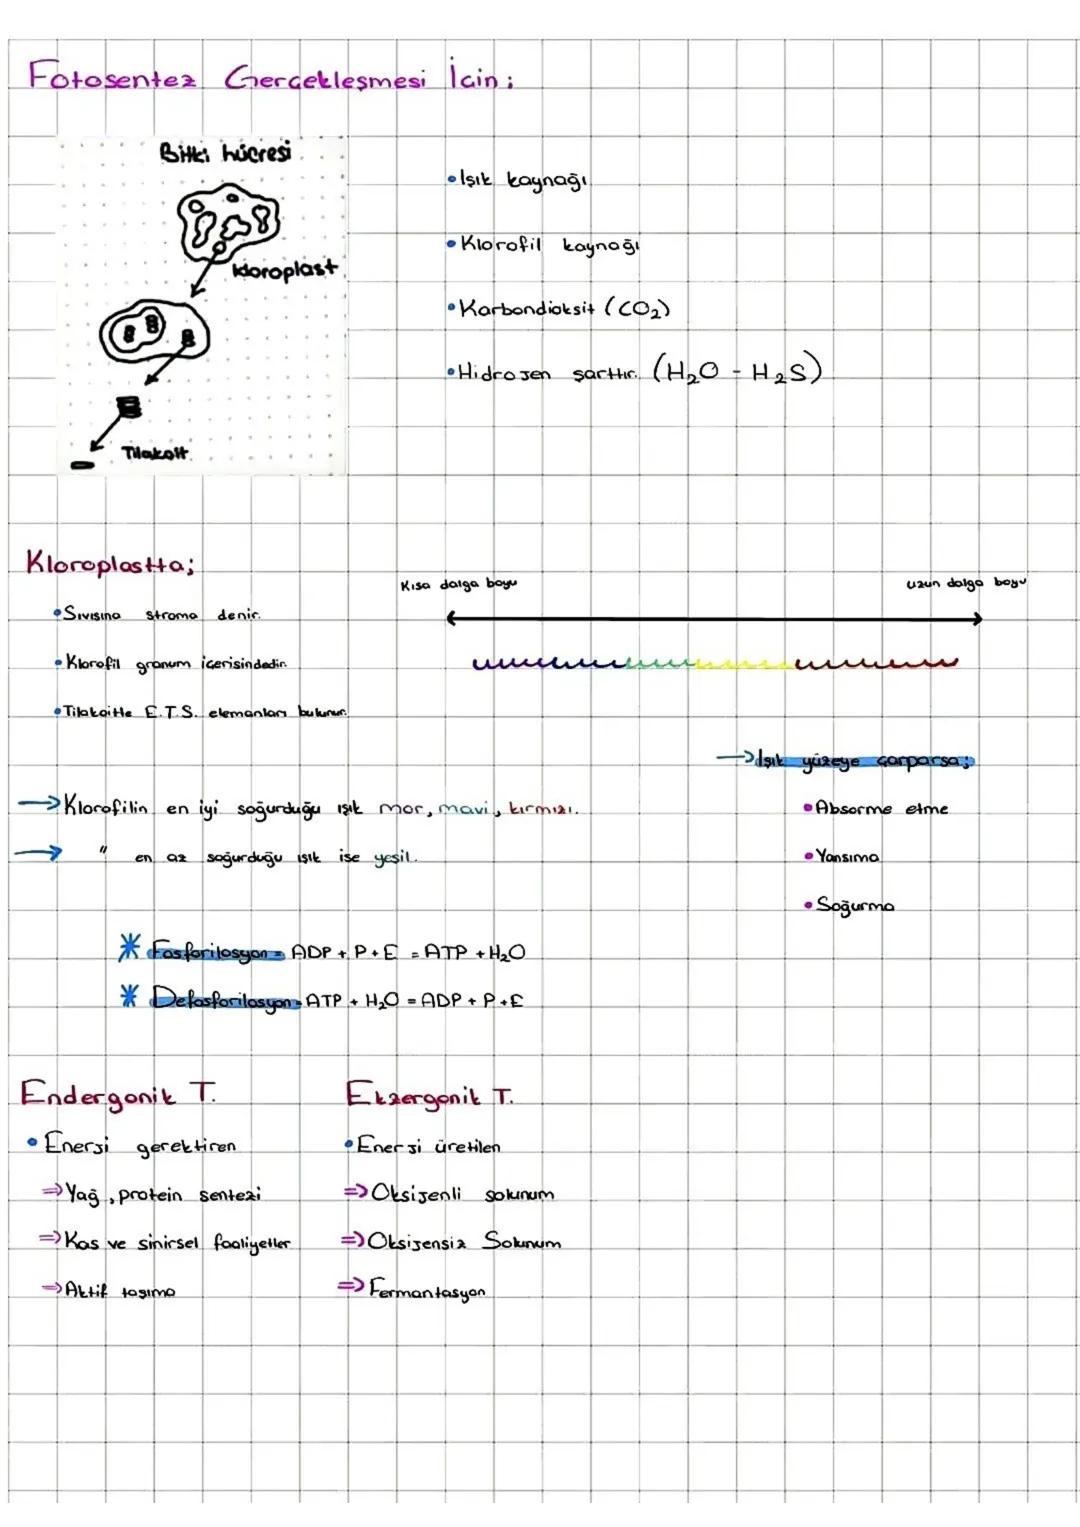 Fotosentez Gerçekleşmesi İçin;
Bitki hücresi
kloroplast
Tilakoit
• Işık kaynağı
• Klorofil kaynağı
• Karbondioksit (CO₂)
• Hidrojen şarttır. (H₂O - H₂S)
Kloroplastta;
• Sıvısına stroma denir.
• Klorofil granum içerisindedir.
• Tilakoitte E.T.S. elemanları bulunur.
Kısa dalga boyu
uzun dalga boyu
→ Işık yüzeye çarparsa;
• Absorme etme
• Yansıma
• Soğurma
→ Klorofilin en iyi soğurduğu ışık mor, mavi, kırmızı.
→ " en az soğurduğu ışık ise yeşil.
* Fosforilasyon = ADP + P + E = ATP + H₂O
* Defosforilasyon = ATP + H₂O = ADP + P + E
Endergonik T.
• Enerji gerektiren
⇒ Yağ, protein sentezi
⇒ Kas ve sinirsel faaliyetler
⇒ Aktif taşıma
Ekzergonik T.
• Enerji üretilen
⇒ Oksijenli solunum
⇒ Oksijensiz Solunum
⇒ Fermantasyon